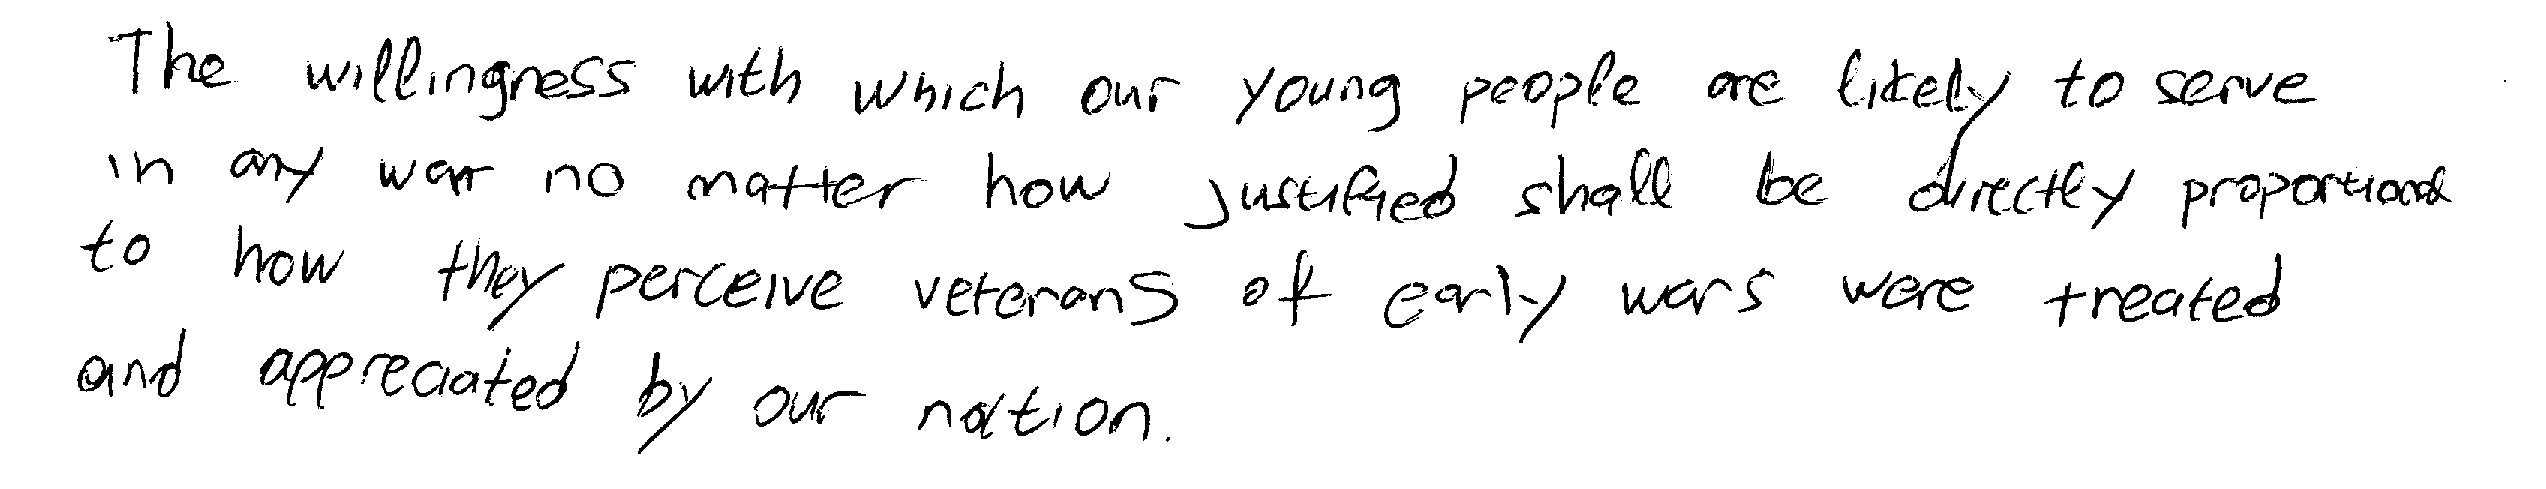 The willingness with which our young people are likely to serve
in any war no matter how justified shall be directly proportional
to how they perceive veterans of early wars were treated
and appreciated by our nation.